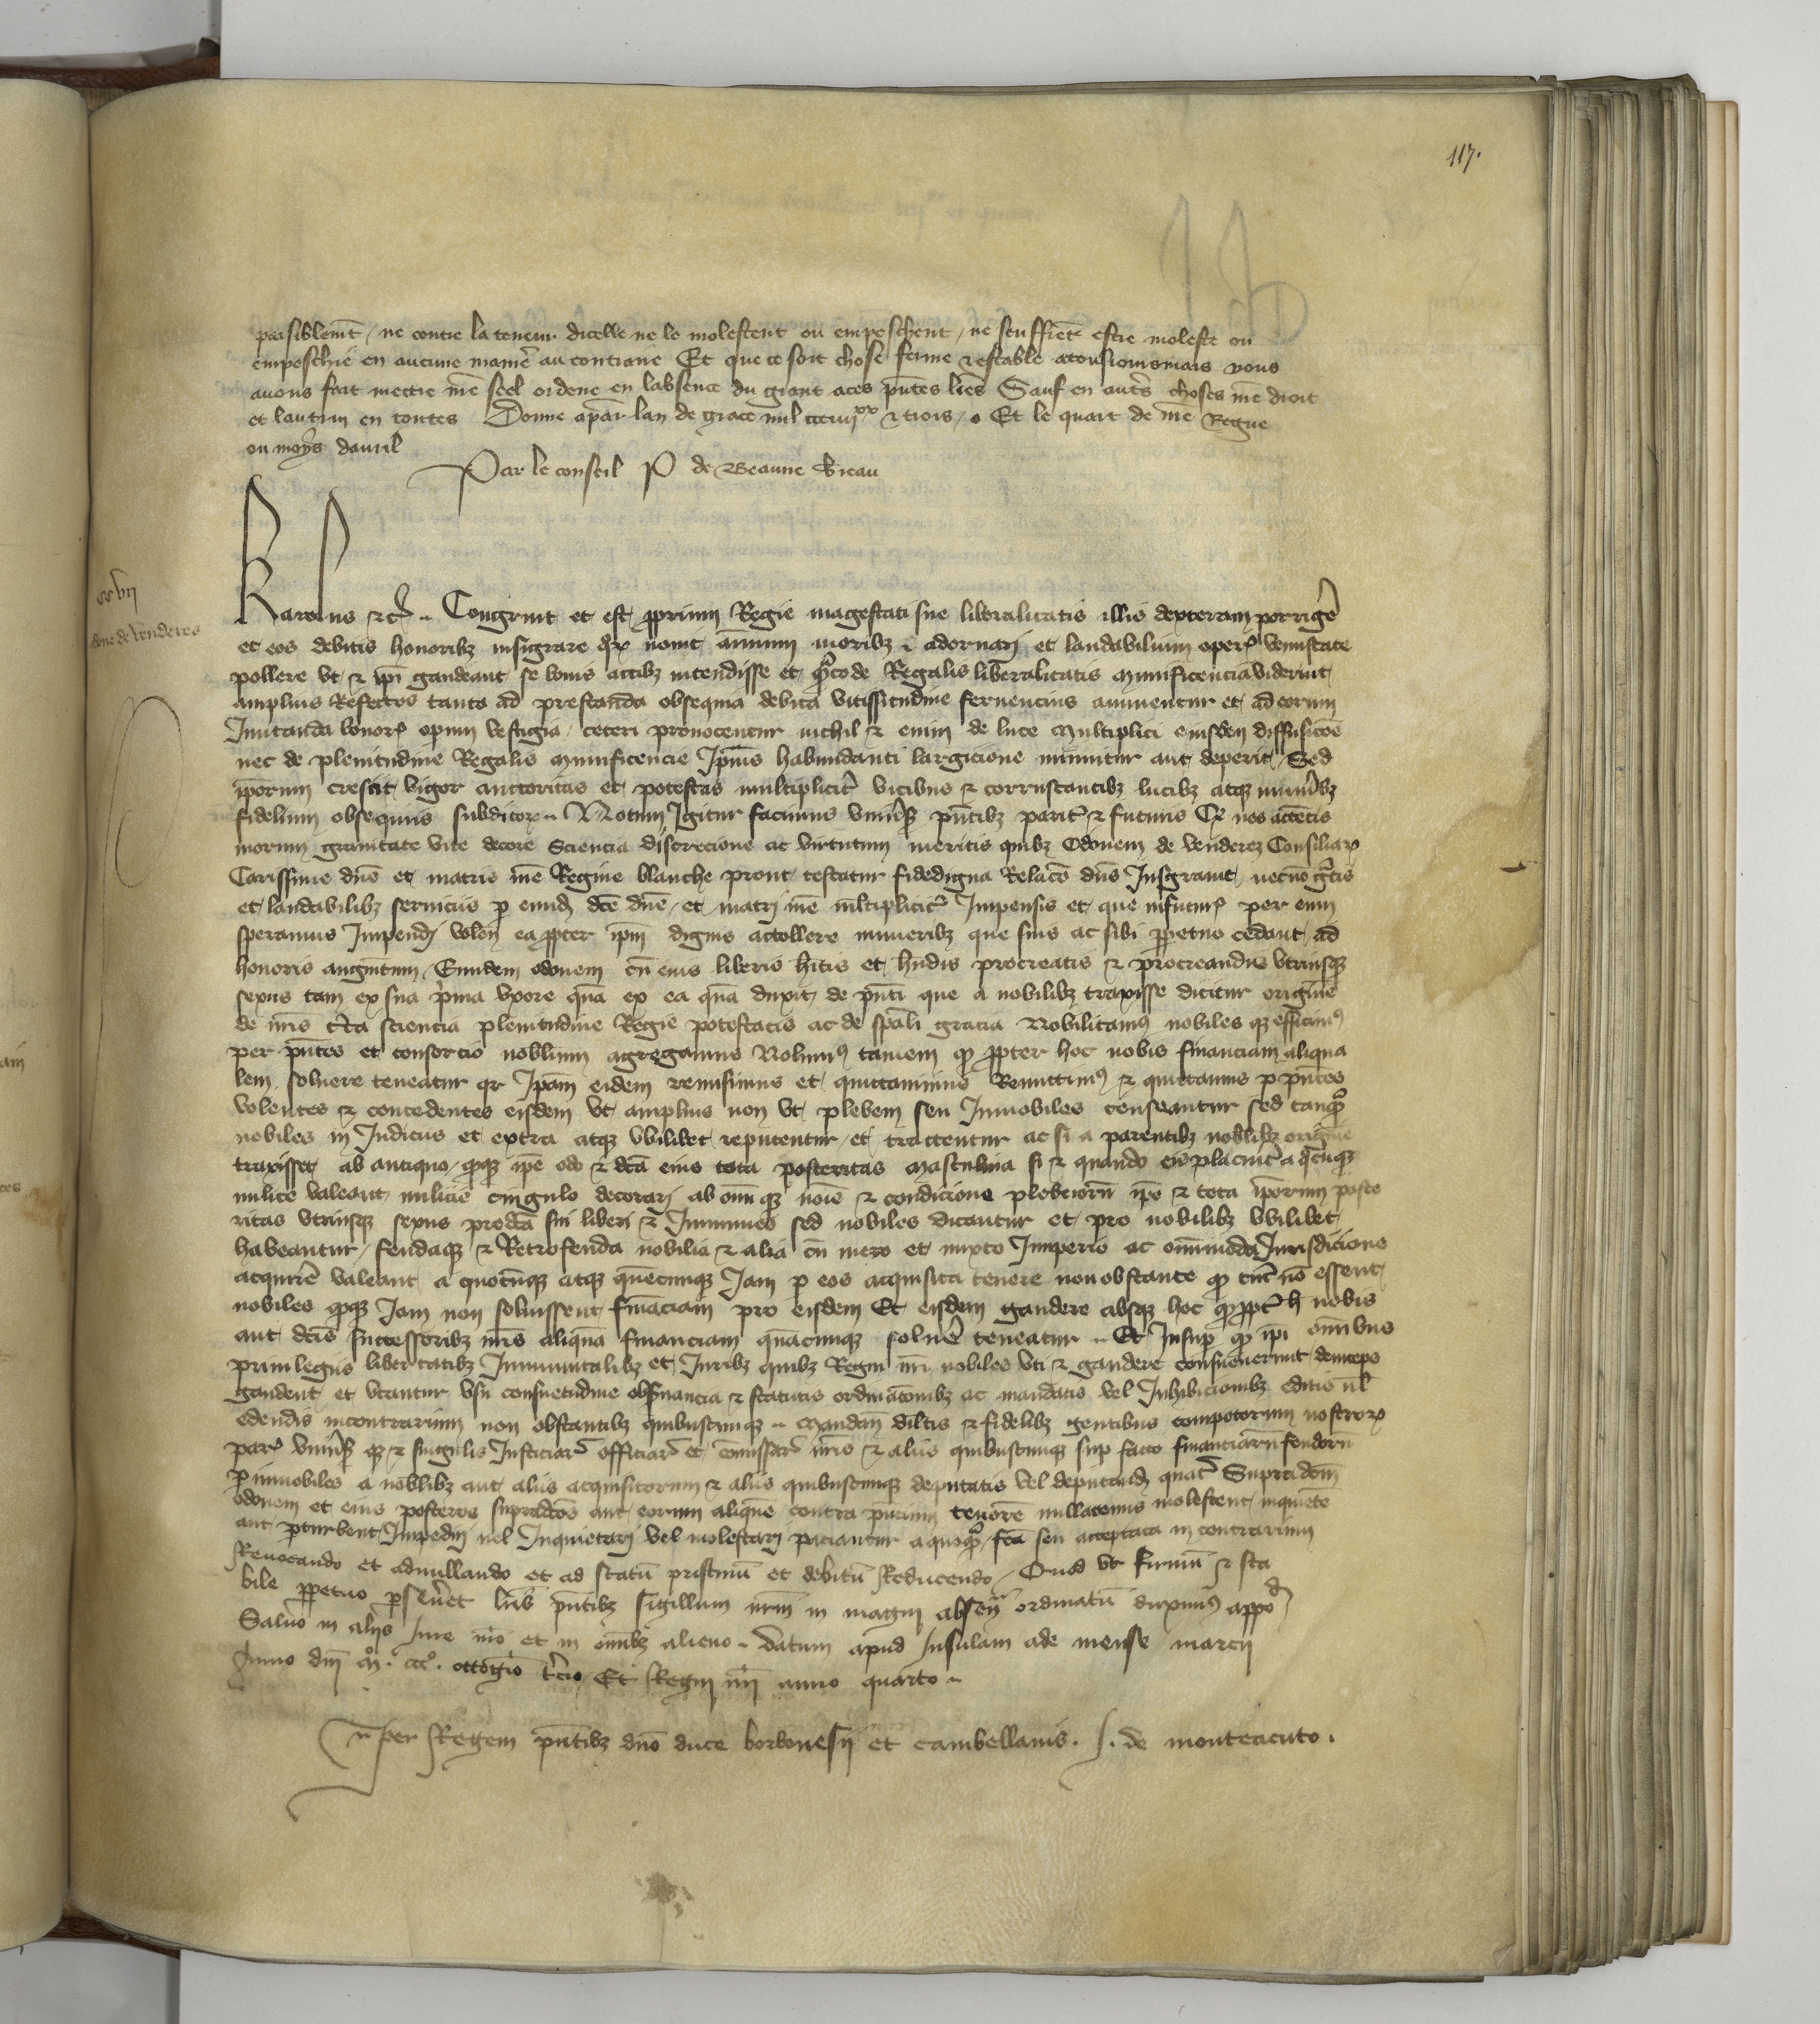 117.
paisiblemt / ne contre la teneur dicelle ne le molestent ou empeschent / ne seuffret estre moleste ou
empeschie en aucune manie au contraire Et que ce soit chose ferme & estable atousioursmais nous
avons fait mectre nre seel ordene en labsence du grant a ces pntes lres Sauf en autres choses nre droit
et lautrui en toutes Donne a par lan de grace mil ccciiijxx & trois / Et le quart de nre Regne
ou moys davril
Par le conseil P de Beaune Vieau
xxvij
done de Venderes
Karolus &c Congruit et est pprium Regie magestati sue liberalitatis illis dexteram porrige
et eos debitis honoribz insignire novit animum moribz adornari et laudabilium oper venustate
pollere vt & ipi gaudeant se bonis actibz intendisse et Regalis liberalitatis munificencia viderint
amplius Refectos tanto ad prestanda obsequia debita vicissitudine fervencius animentur et ad eorum
Imitanda bonor opum vestigia / ceteri provocentur nichil & enim de luce multiplici eiusdem diffusioe
nec de plenitudine Regalis munificencie Ipius habundanti largicione minuitur aut deperit / Sed
ipsorum crescit vigor auctoritas et potestas multiplicit vicibus & corruscantibz lucibz atqz munibz
fidelium obsequiis subditor Notum Igitur facimus vniusis pntibz parit & futuris Q nos attetis
morum gravitate vite decore Sciencia discrecione ac virtutum meritis quibz Odonem de Venderez Consiliar
Carissime dne et matris nre Regine blanche prout testatur fidedigna Relaco dns Insignivit necno gtis
et laudabilibz serviciis p eumd dce dne et matri nre mltiplicit Impensis et que infutur per eum
speramus Impendi volen eapter ipm dignis attollere muneribz que suis ac sibi ppetuo cedant ad
honoris augmtum / Eundem odonem cu eius liberis hitis et hndis procreatis & procreandis vtriusqz
sexus tam ex sua pima vxore qua ex ea qua duxit de pnti que a nobilibz traxisse dicitur origine
de nris cta sciencia plenitudine Regie potestatis ac de spali gracia Nobilitamus nobiles qz efficimus
per pntes et consorcio nobilium agregamus Nolumus tamen q ppter hoc nobis financiam aliqua
lem soluere teneatur qr Ipam eidem remisimus et quittavimus Remittimus & quittamus p pntes
volentes & concedentes eisdem vt amplius non vt plebem seu Innobiles censeantur sed tanq
nobiles in Iudiciis et extra atqz vbilibet reputentur / et tractentur ac si a parentibz nobilibz origine
traxisset ab antiquo / ipe odo & dca eius tota posteritas masculina si & quando eis placuit a qcuqz
milite valeant milicie cingulo decorari ab omi qz noie & condicione plebeiorum ipe & tota iporum poste
ritas vtriusqz sexus predca sui liberi & Immunes sed nobiles dicantur et pro nobilibz vbilibet
habeantur / feudaqz & Retrofeuda nobilia & alia cu mero et mixto Imperio ac omimoda Iurisdicione
acquire valeant a quocuqz atqz quecumqz Iam p eos acquisita tenere nonobstante q tuc no essent
nobiles Iam non soluissent financiam pro eisdem Et eisdem gaudere absqz hoc q ppt h nobis
aut dcis successoribz nris aliqua financiam quacumqz solue teneatur Et Insup q ipi omibus
privilegiis libertatibz Immunitatibz et Iuribz quibz Regni nri nobiles vti & gaudere consueuerunt deinceps
gaudent et vtantur vsu consuetudine obseruancia & statutis ordinatoibz ac mandatis vel Inhibicionibz editis ul
edendis incontrarium non obstantibz quibuscumqz Mandam dilctis & fidelibz gentibus compotorum nostror
par vniusis qz & singulis Iusticiar officiar et comissar nris & aliis quibuscumqz sup facto financiaru feudoru
p innobiles a nobilibz aut aliis acquisitorum & aliis quibuscumqz deputatis vel deputand quat Supradcm
odonem et eius posteros supradcos aut eorum alique contra pncium tenore nullatenus molestent / inquiete
aut pturbent / Impediri uel Inquietari vel molestari paciantur a quoq / fca seu acceptata in contrarium
Revocando et adnullando et ad statu pristinu et debitu Reducendo / Quod vt firmu & sta
bile ppetuo pseueret lris pntibz sigillum nrm in magni absen ordinatu duximus appo
Salvo in aliis Iure nro et in omibz alieno Datum apud Insulam ade mense marcii
Anno dni mo. ccco. octogio tcio Et Regni nri anno quarto
per Regem pntibz dno duce borbonesii et cambellanis. J. de monteacuto.